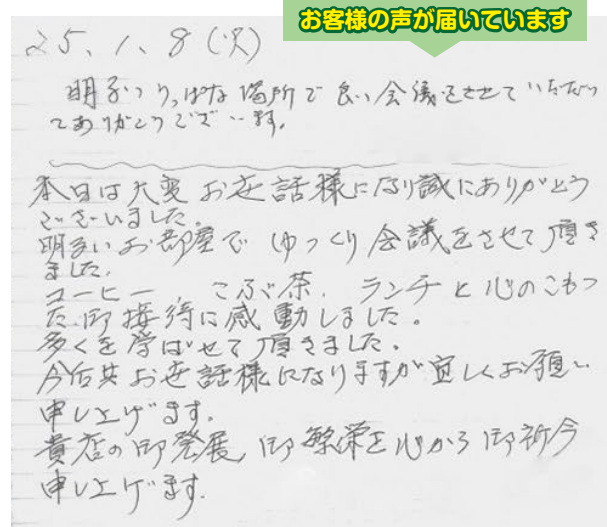 お客様の声が届いています
25.1.8(火)
明るいりっぱな場所で良い会議をさせていただい
てありがとうございます。
本日は大変お世話様になり誠にありがとう
ございました。
明るいお部屋でゆっくり会議をさせて頂き
ました。
コーヒー、こぶ茶、ランチと心のこもっ
た御接待に感動しました。
多くを学ばせて頂きました。
今后共お世話様になりますが宜しくお願い
申し上げます。
貴店の御発展御繁栄を心から御祈念
申し上げます。